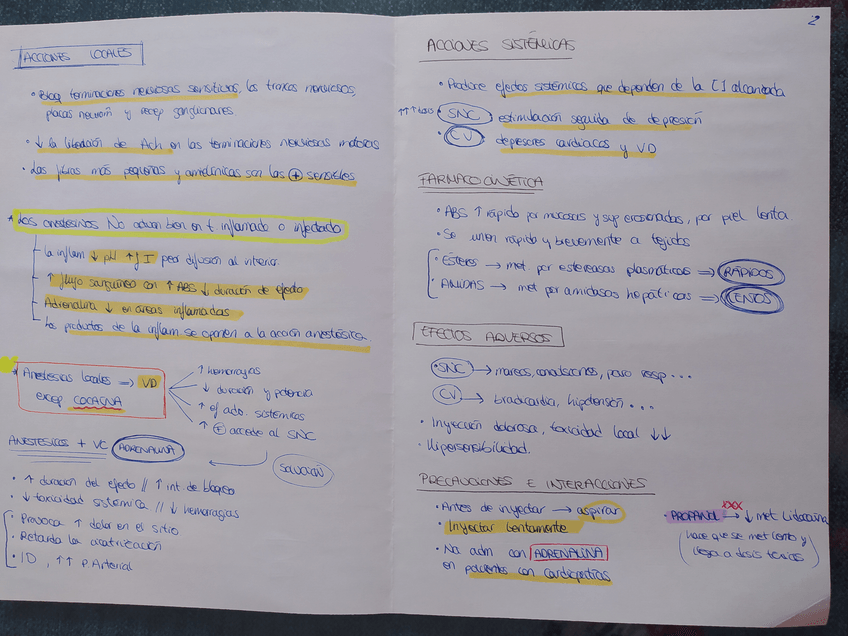 ACCIONES LOCALES
• Bloq terminaciones nerviosas sensitivas, los troncos nerviosos,
placas neurom y recep ganglionares
• ↓ la liberación de Ach en las terminaciones nerviosas motoras
• Las fibras más pequeñas y amielínicas son las ⊕ sensibles
* Los anestésicos No actúan bien en t inflamado o infectado
- la inflam ↓ pH ↑ f I peor difusión al interior.
- ↑ flujo sanguíneo con ↑ ABS ↓ duración de efecto
- Adrenalina ↓ en áreas inflamadas
- Los productos de la inflam se oponen a la acción anestésica.
* Anestésicos locales => VD
excep COCAÍNA
↑ hemorragias
↓ duración y potencia
↑ ef adv. sistémicos
↑ ⊕ acceso al SNC
ANESTÉSICOS + VC ADRENALINA
SOLUCIÓN
• ↑ duración del efecto // ↑ int. de bloqueo
• ↓ toxicidad sistémica // ↓ hemorragias
• Provoca ↑ dolor en el sitio
• Retarda la cicatrización
• ID, ↑↑ P. Arterial
2
ACCIONES SISTÉMICAS
• Produce efectos sistémicos que dependen de la [ ] alcanzada
↑↑↑ dosis • SNC estimulación seguida de depresión
• CV depresores cardíacos y VD
FARMACOCINÉTICA
• ABS ↑ rápido por mucosas y sup erosionadas, por piel lenta
• Se unen rápido y brevemente a tejidos
• ESTERES → met por estereasas plasmáticas => RÁPIDOS
• AMIDAS → met por amidasas hepáticas => LENTOS
EFECTOS ADVERSOS
• SNC → mareos, convulsiones, paro resp...
• CV → bradicardia, hipotensión...
• Inyección dolorosa, toxicidad local ↓↓
• Hipersensibilidad.
PRECAUCIONES E INTERACCIONES
• Antes de inyectar → aspirar
• Inyectar lentamente
• No adm con ADRENALINA
en pacientes con cardiopatías
XXX
• PROPANOL → ↓ met Lidocaína
(hace que se met lento y
llega a dosis tóxicas)